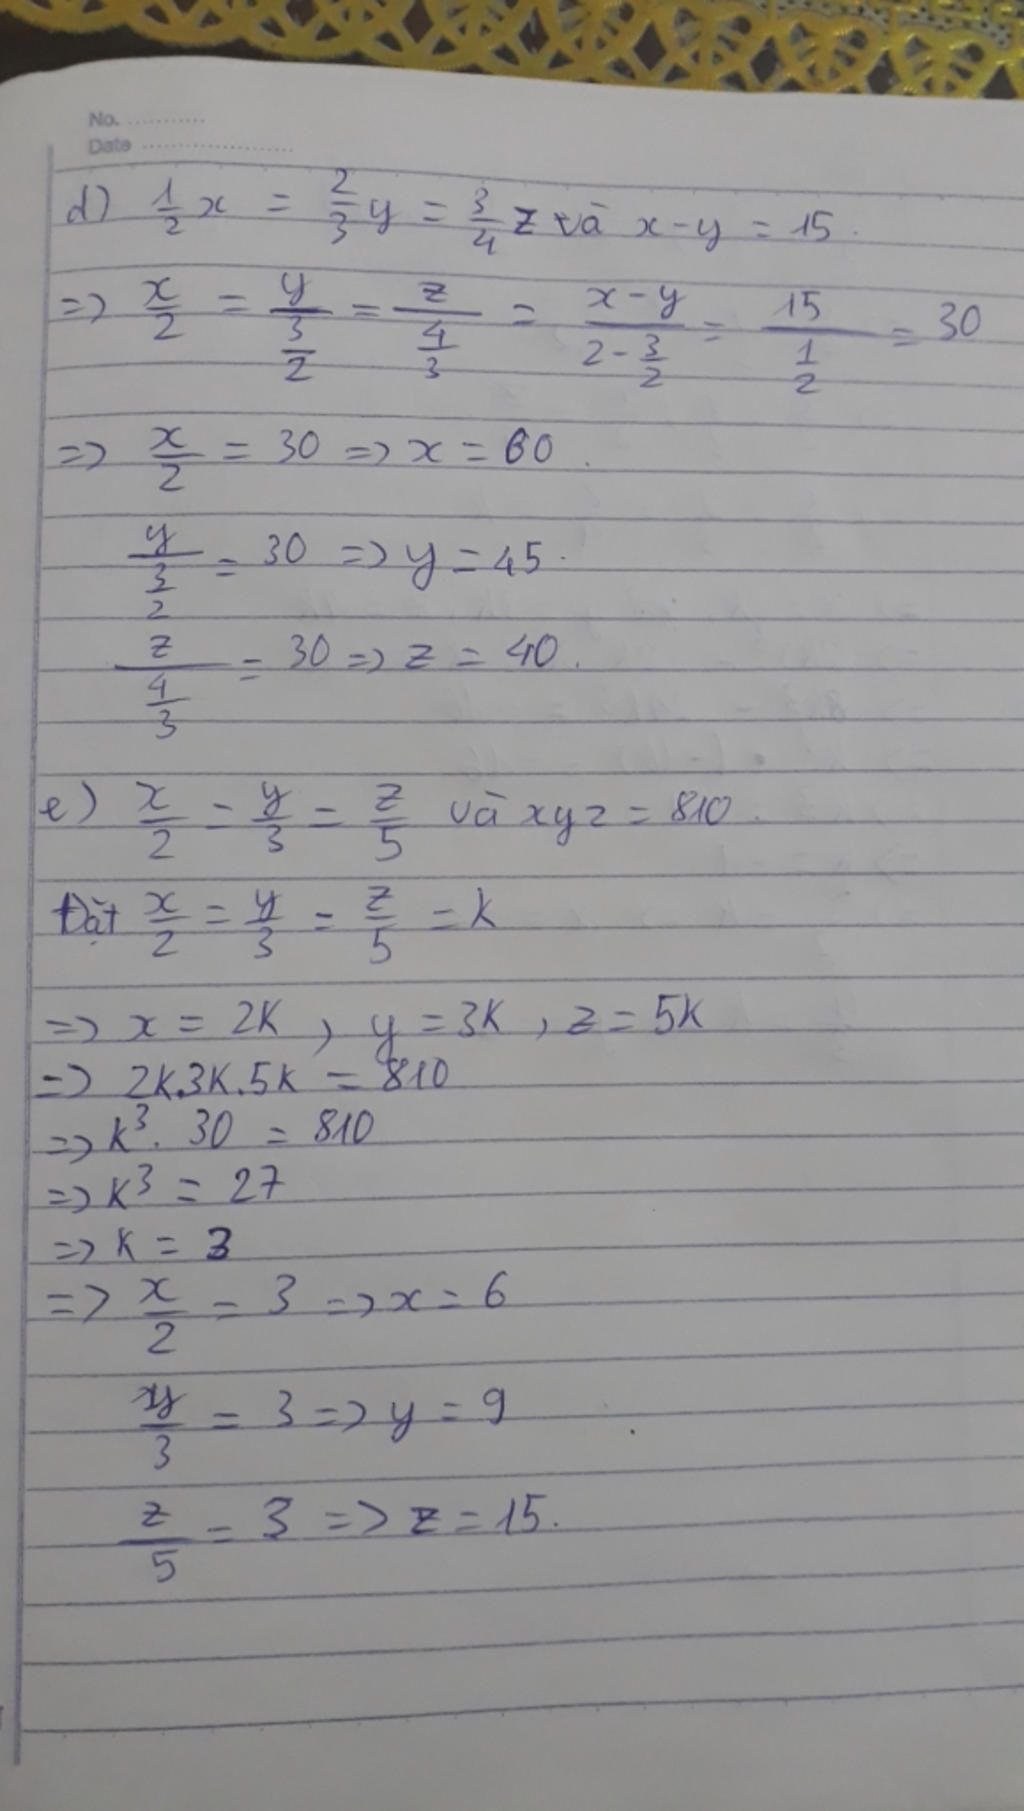 No. ...........
Date ......................
d) 1/2 x = 2/3 y = 3/4 z và x - y = 15.
=> x/2 = y/(3/2) = z/(4/3) = (x - y)/(2 - 3/2) = 15/(1/2) = 30
=> x/2 = 30 => x = 60.
y/(3/2) = 30 => y = 45.
z/(4/3) = 30 => z = 40.
e) x/2 = y/3 = z/5 và xyz = 810.
Đặt x/2 = y/3 = z/5 = k
=> x = 2k, y = 3k, z = 5k
=> 2k.3k.5k = 810
=> k³. 30 = 810
=> k³ = 27
=> k = 3
=> x/2 = 3 => x = 6
y/3 = 3 => y = 9
z/5 = 3 => z = 15.